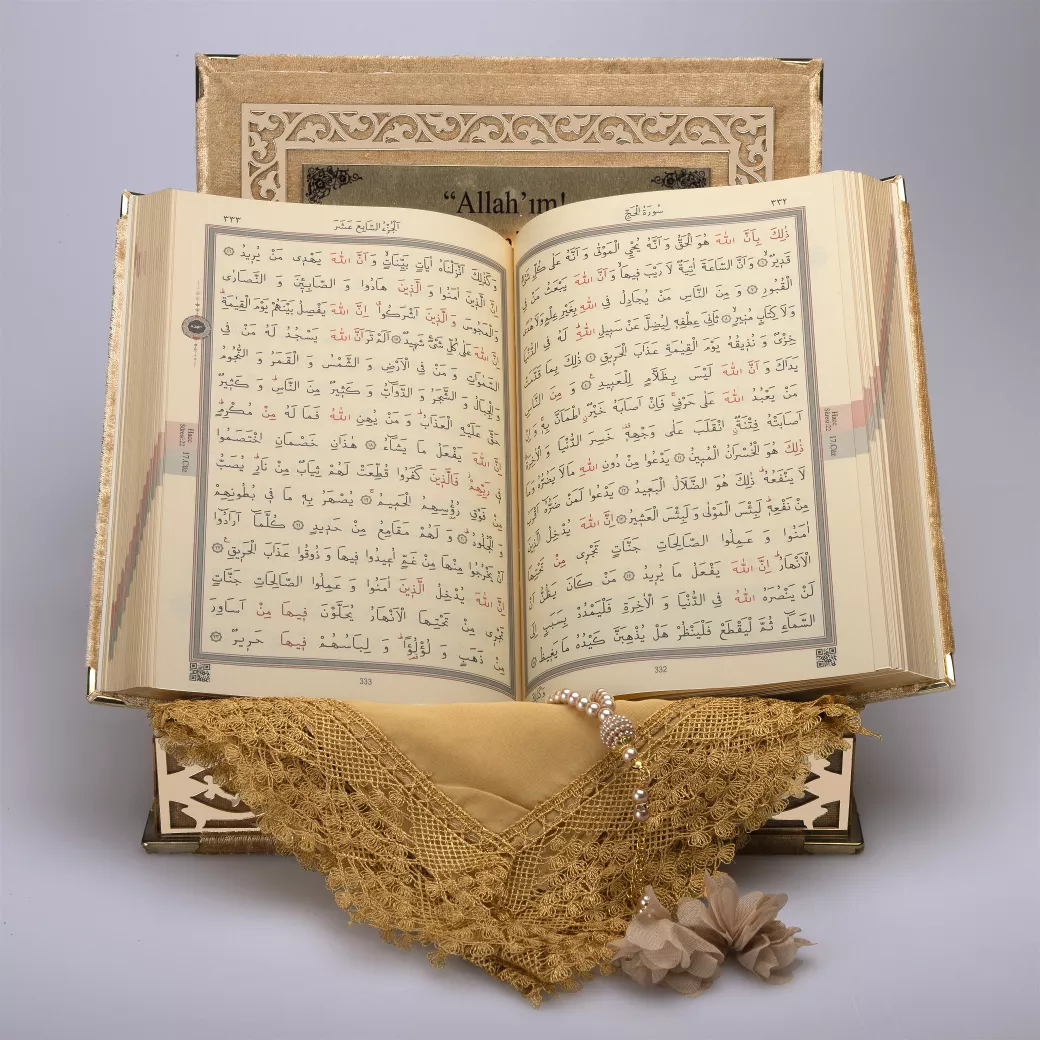 “Allah’ım!
٣٣٢
سُورَةُ الْحَجِّ
ذٰلِكَ بِاَنَّ اللّٰهَ هُوَ الْحَقُّ وَ اَنَّهُ يُحْيِ الْمَوْتٰى وَ اَنَّهُ عَلٰى كُلِّ شَيْءٍ
قَدِيرٌ ۞ وَ اَنَّ السَّاعَةَ اٰتِيَةٌ لَا رَيْبَ فِيهَا وَ اَنَّ اللّٰهَ يَبْعَثُ مَنْ فِي
الْقُبُورِ ۞ وَ مِنَ النَّاسِ مَنْ يُجَادِلُ فِي اللّٰهِ بِغَيْرِ عِلْمٍ وَلَا هُدًى
وَلَا كِتَابٍ مُنِيرٍ ۞ ثَانِيَ عِطْفِهِ لِيُضِلَّ عَنْ سَبِيلِ اللّٰهِ لَهُ فِي الدُّنْيَا
خِزْيٌ وَ نُذِيقُهُ يَوْمَ الْقِيٰمَةِ عَذَابَ الْحَرِيقِ ۞ ذٰلِكَ بِمَا قَدَّمَتْ
يَدَاكَ وَ اَنَّ اللّٰهَ لَيْسَ بِظَلَّامٍ لِلْعَبِيدِ ۞ وَ مِنَ النَّاسِ
مَنْ يَعْبُدُ اللّٰهَ عَلٰى حَرْفٍ فَاِنْ اَصَابَهُ خَيْرٌ اطْمَاَنَّ بِهِ وَ اِنْ
اَصَابَتْهُ فِتْنَةٌ انْقَلَبَ عَلٰى وَجْهِهِ خَسِرَ الدُّنْيَا وَ الْاٰخِرَةَ
ذٰلِكَ هُوَ الْخُسْرَانُ الْمُبِينُ ۞ يَدْعُوا مِنْ دُونِ اللّٰهِ مَا لَا يَضُرُّهُ وَمَا
لَا يَنْفَعُهُ ذٰلِكَ هُوَ الضَّلَالُ الْبَعِيدُ ۞ يَدْعُوا لَمَنْ ضَرُّهُ اَقْرَبُ
مِنْ نَفْعِهِ لَبِئْسَ الْمَوْلٰى وَ لَبِئْسَ الْعَشِيرُ ۞ اِنَّ اللّٰهَ يُدْخِلُ الَّذِينَ
اٰمَنُوا وَ عَمِلُوا الصَّالِحَاتِ جَنَّاتٍ تَجْرِي مِنْ تَحْتِهَا
الْاَنْهَارُ اِنَّ اللّٰهَ يَفْعَلُ مَا يُرِيدُ ۞ مَنْ كَانَ يَظُنُّ اَنْ
لَنْ يَنْصُرَهُ اللّٰهُ فِي الدُّنْيَا وَ الْاٰخِرَةِ فَلْيَمْدُدْ بِسَبَبٍ اِلَى
السَّمَاءِ ثُمَّ لْيَقْطَعْ فَلْيَنْظُرْ هَلْ يُذْهِبَنَّ كَيْدُهُ مَا يَغِيظُ ۞
332
Hacc
Sûresi:22 17.Cüz
٣٣٣
اَلْجُزْءُ السَّابِعَ عَشَرَ
وَ كَذٰلِكَ اَنْزَلْنَاهُ اٰيَاتٍ بَيِّنَاتٍ وَ اَنَّ اللّٰهَ يَهْدِي مَنْ يُرِيدُ ۞
اِنَّ الَّذِينَ اٰمَنُوا وَ الَّذِينَ هَادُوا وَ الصَّابِئِينَ وَ النَّصَارٰى
وَ الْمَجُوسَ وَ الَّذِينَ اَشْرَكُوا اِنَّ اللّٰهَ يَفْصِلُ بَيْنَهُمْ يَوْمَ الْقِيٰمَةِ
اِنَّ اللّٰهَ عَلٰى كُلِّ شَيْءٍ شَهِيدٌ ۞ اَلَمْ تَرَ اَنَّ اللّٰهَ يَسْجُدُ لَهُ مَنْ فِي
السَّمٰوَاتِ وَ مَنْ فِي الْاَرْضِ وَ الشَّمْسُ وَ الْقَمَرُ وَ النُّجُومُ
وَ الْجِبَالُ وَ الشَّجَرُ وَ الدَّوَابُّ وَ كَثِيرٌ مِنَ النَّاسِ وَ كَثِيرٌ
حَقَّ عَلَيْهِ الْعَذَابُ وَ مَنْ يُهِنِ اللّٰهُ فَمَا لَهُ مِنْ مُكْرِمٍ
اِنَّ اللّٰهَ يَفْعَلُ مَا يَشَاءُ ۞ هٰذَانِ خَصْمَانِ اخْتَصَمُوا
فِي رَبِّهِمْ فَالَّذِينَ كَفَرُوا قُطِّعَتْ لَهُمْ ثِيَابٌ مِنْ نَارٍ يُصَبُّ
مِنْ فَوْقِ رُؤُسِهِمُ الْحَمِيمُ ۞ يُصْهَرُ بِهِ مَا فِي بُطُونِهِمْ
وَ الْجُلُودُ ۞ وَ لَهُمْ مَقَامِعُ مِنْ حَدِيدٍ ۞ كُلَّمَا اَرَادُوا
اَنْ يَخْرُجُوا مِنْهَا مِنْ غَمٍّ اُعِيدُوا فِيهَا وَ ذُوقُوا عَذَابَ الْحَرِيقِ ۞
اِنَّ اللّٰهَ يُدْخِلُ الَّذِينَ اٰمَنُوا وَ عَمِلُوا الصَّالِحَاتِ جَنَّاتٍ
تَجْرِي مِنْ تَحْتِهَا الْاَنْهَارُ يُحَلَّوْنَ فِيهَا مِنْ اَسَاوِرَ
مِنْ ذَهَبٍ وَ لُؤْلُؤًا وَ لِبَاسُهُمْ فِيهَا حَرِيرٌ ۞
333
Hacc
Sûresi:22 17.Cüz